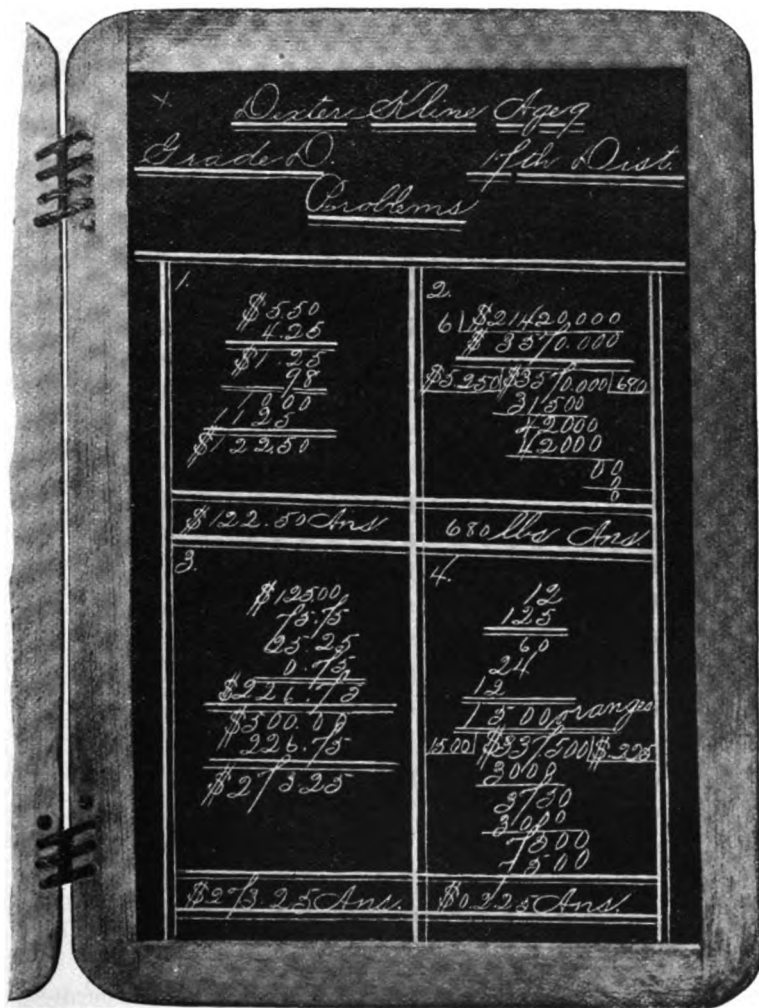 X
Dexter Kline Age 9
Grade D. 17th Dist.
Problems
1.
$5.50
4.25
$1.25
98
1000
1125
$122.50
$122.50 Ans.
2.
6 | $21420.000
$3570.000
$5.250 | $3570.000 | 680
31500
42000
42000
00
0
680 lbs Ans.
3.
$125.00
75.75
25.25
0.75
$226.75
$500.00
226.75
$273.25
$273.25 Ans.
4.
12
125
60
24
12
1500 oranges
1500 | $337.500 | $.225
3000
3750
3000
7500
7500
$0.225 Ans.